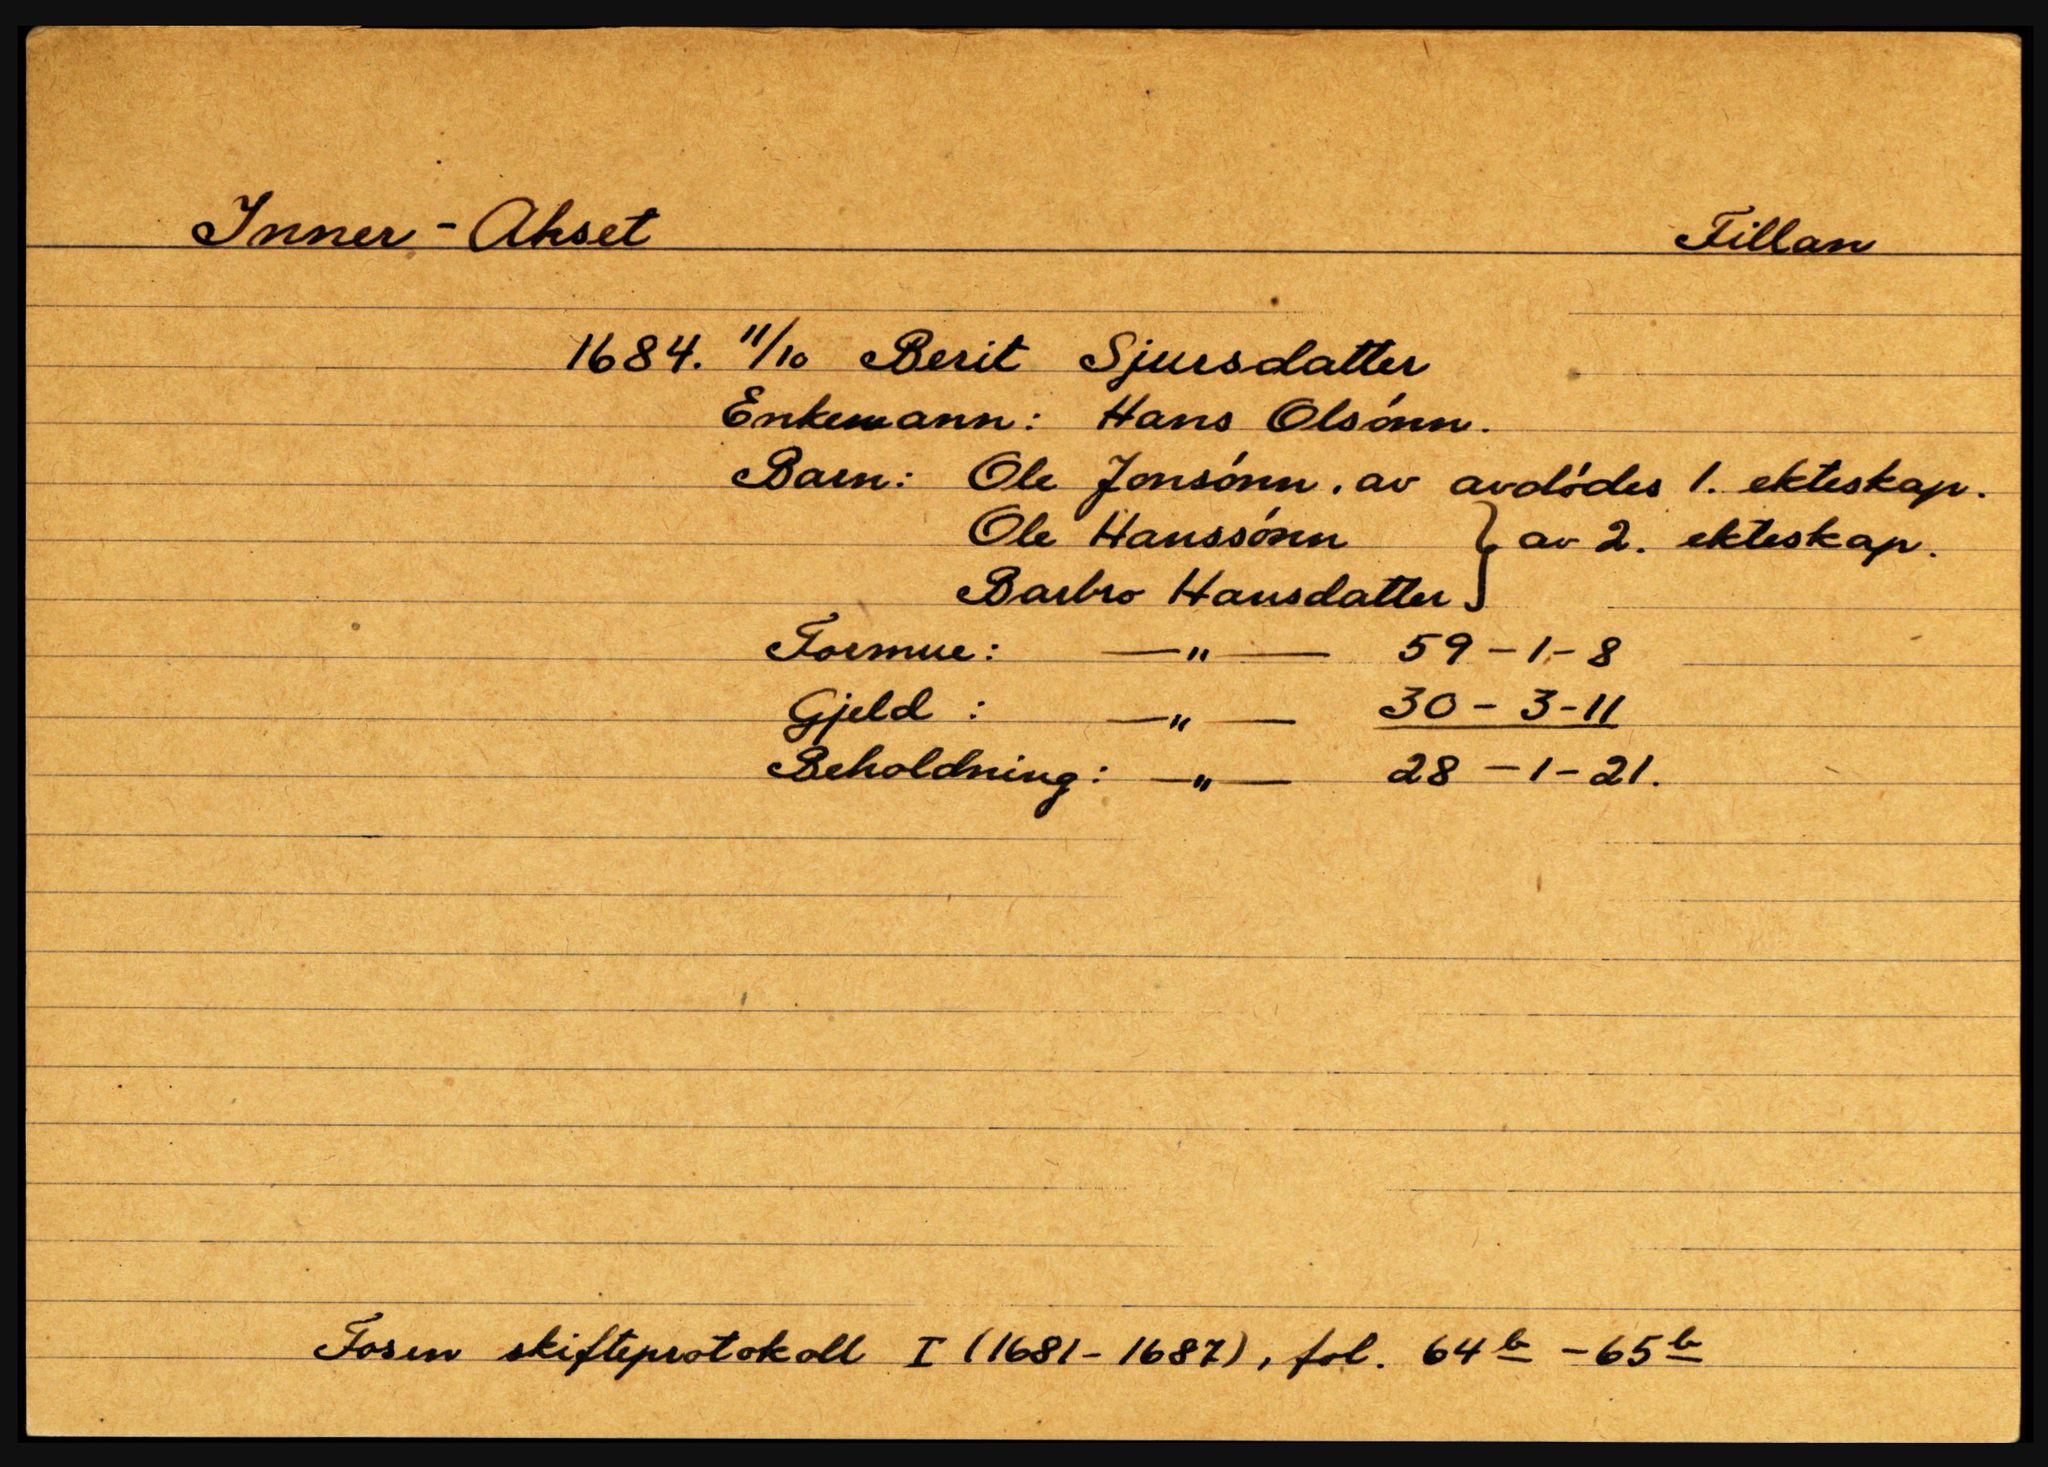 Inner - Akset Fillan
1684. 11/10 Berit Sjursdatter
Enkemann: Hans Olsónn.
Barn: Ole Jonsónn. av avdódes 1. ekteskap.
Ole Hanssónn } av 2. ekteskap.
Barbro Hansdatter
Formue: —"— 59-1-8
Gjeld : —"— 30-3-11
Beholdning: —"— 28-1-21.
Fosen skifteprotokoll I (1681-1687), fol. 64b -65b